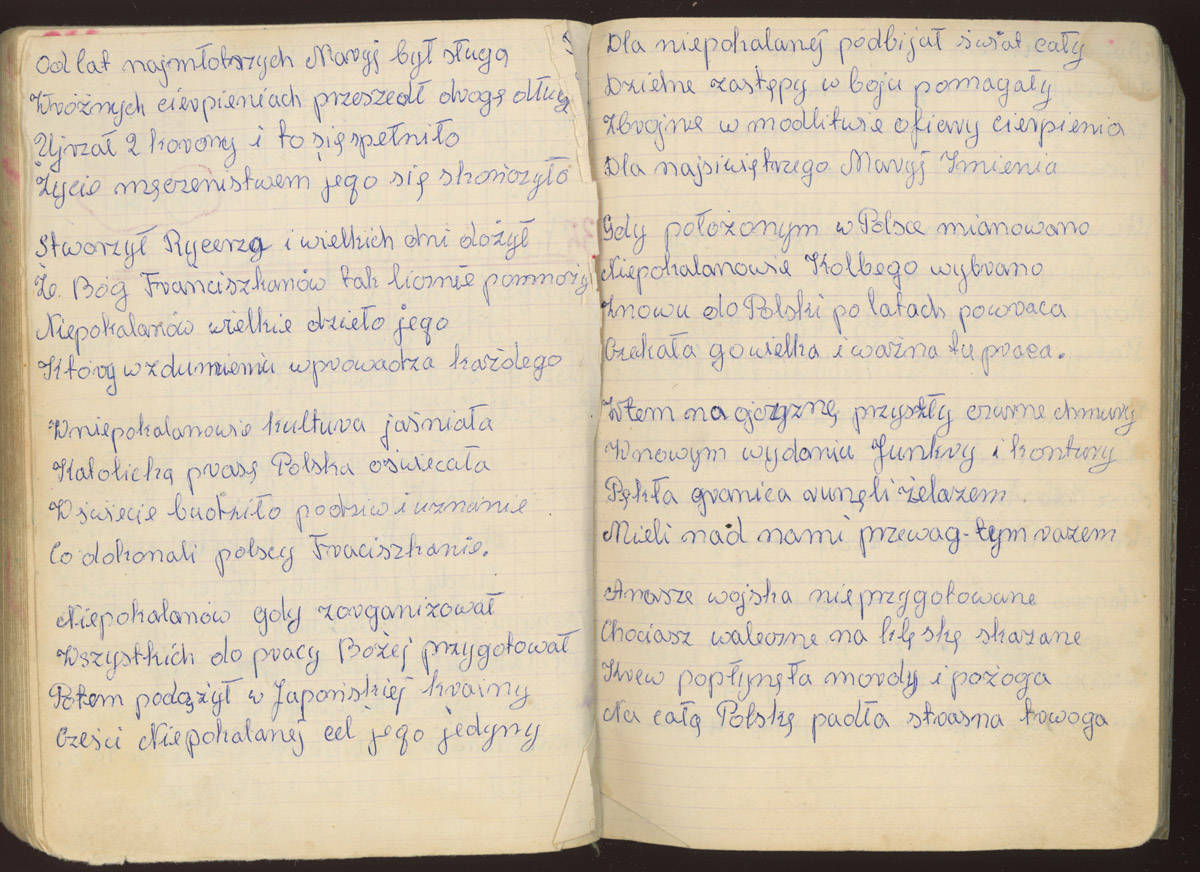 Od lat najmłotszych Maryj był sługą
W różnych cierpieniach przeszedł drogę długą
Ujrzał 2 korony i to się spełniło
Życie męczenistwem jego się skończyło
Stworzył Rycerzą i wielkich dni dożył
Że Bóg Franciszkanów tak licznie pomnożył
Niepokalanów wielkie dzieło jego
Który w zdumieniu wprowadza każdego
W niepokalanowie kultura jaśniała
Katolicką prasę Polska oświecała
W świecie budziło podziw i uznanie
Co dokonali polscy Fraciszkanie.
Niepokalanów gdy zorganizował
Wszystkich do pracy Bożej przygotował
Potem podążył w Japońskiej krainy
Cześci Niepokalanej cel jego jedyny
Dla niepokalanej podbijał świat cały
Dzielne zastępy w boju pomagały
Zbrojne w modlitwie ofiary cierpienia
Dla najświętrzego Maryj Imienia
Gdy położonym w Polsce mianowano
Niepokalanowie Kolbego wybrano
Znowu do Polski po latach powraca
Czekała go wielka i ważna tu praca.
Wtem na ojczyznę przyszły czarne chmury
W nowym wydaniu Junkry i kontury
Pękła granica runęli żelazem
Mieli nad nami przewag- tym razem
A nasze wojska nieprzygotowane
Chociasz waleczne na klęskę skazane
Krew popłynęła mordy i pożoga
Na całą Polskę padła straszna trwoga